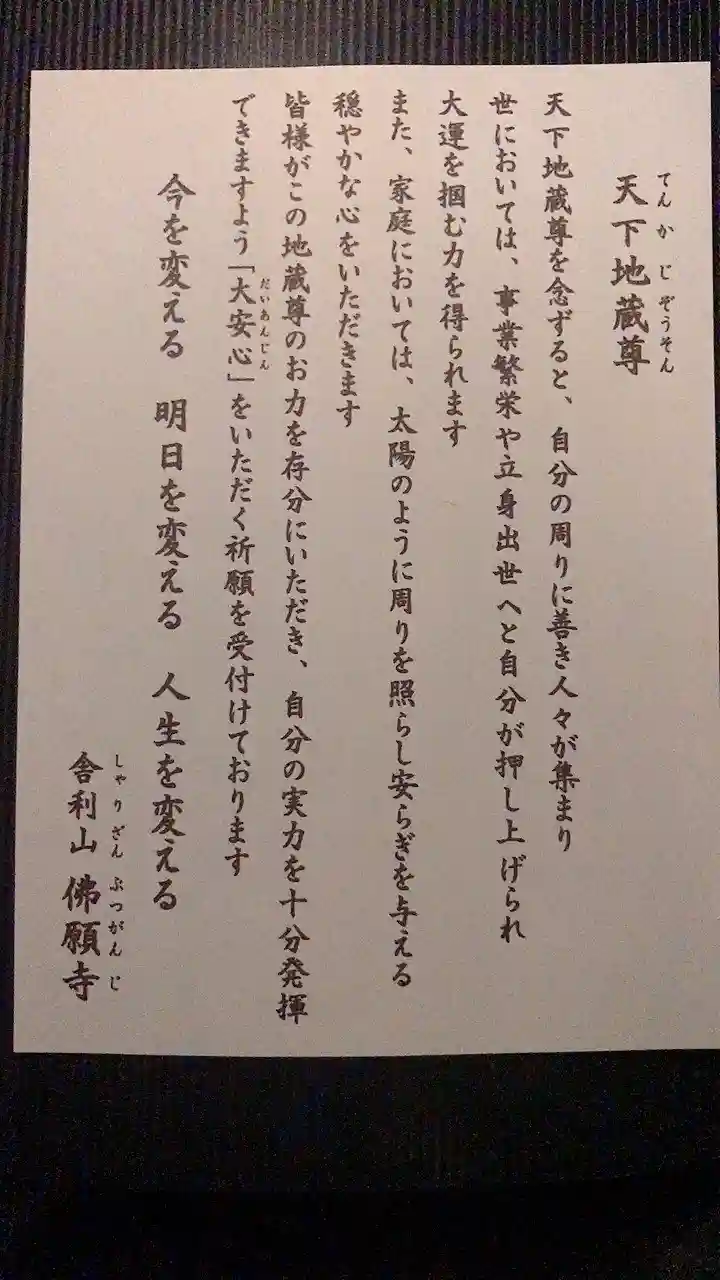 てんかじぞうそん
天下地蔵尊
天下地蔵尊を念ずると、自分の周りに善き人々が集まり
世においては、事業繁栄や立身出世へと自分が押し上げられ
大運を掴む力を得られます
また、家庭においては、太陽のように周りを照らし安らぎを与える
穏やかな心をいただきます
皆様がこの地蔵尊のお力を存分にいただき、自分の実力を十分発揮
だいあんじん
できますよう「大安心」をいただく祈願を受付けております
今を変える 明日を変える 人生を変える
しゃりざん ぶつがんじ
舎利山 佛願寺